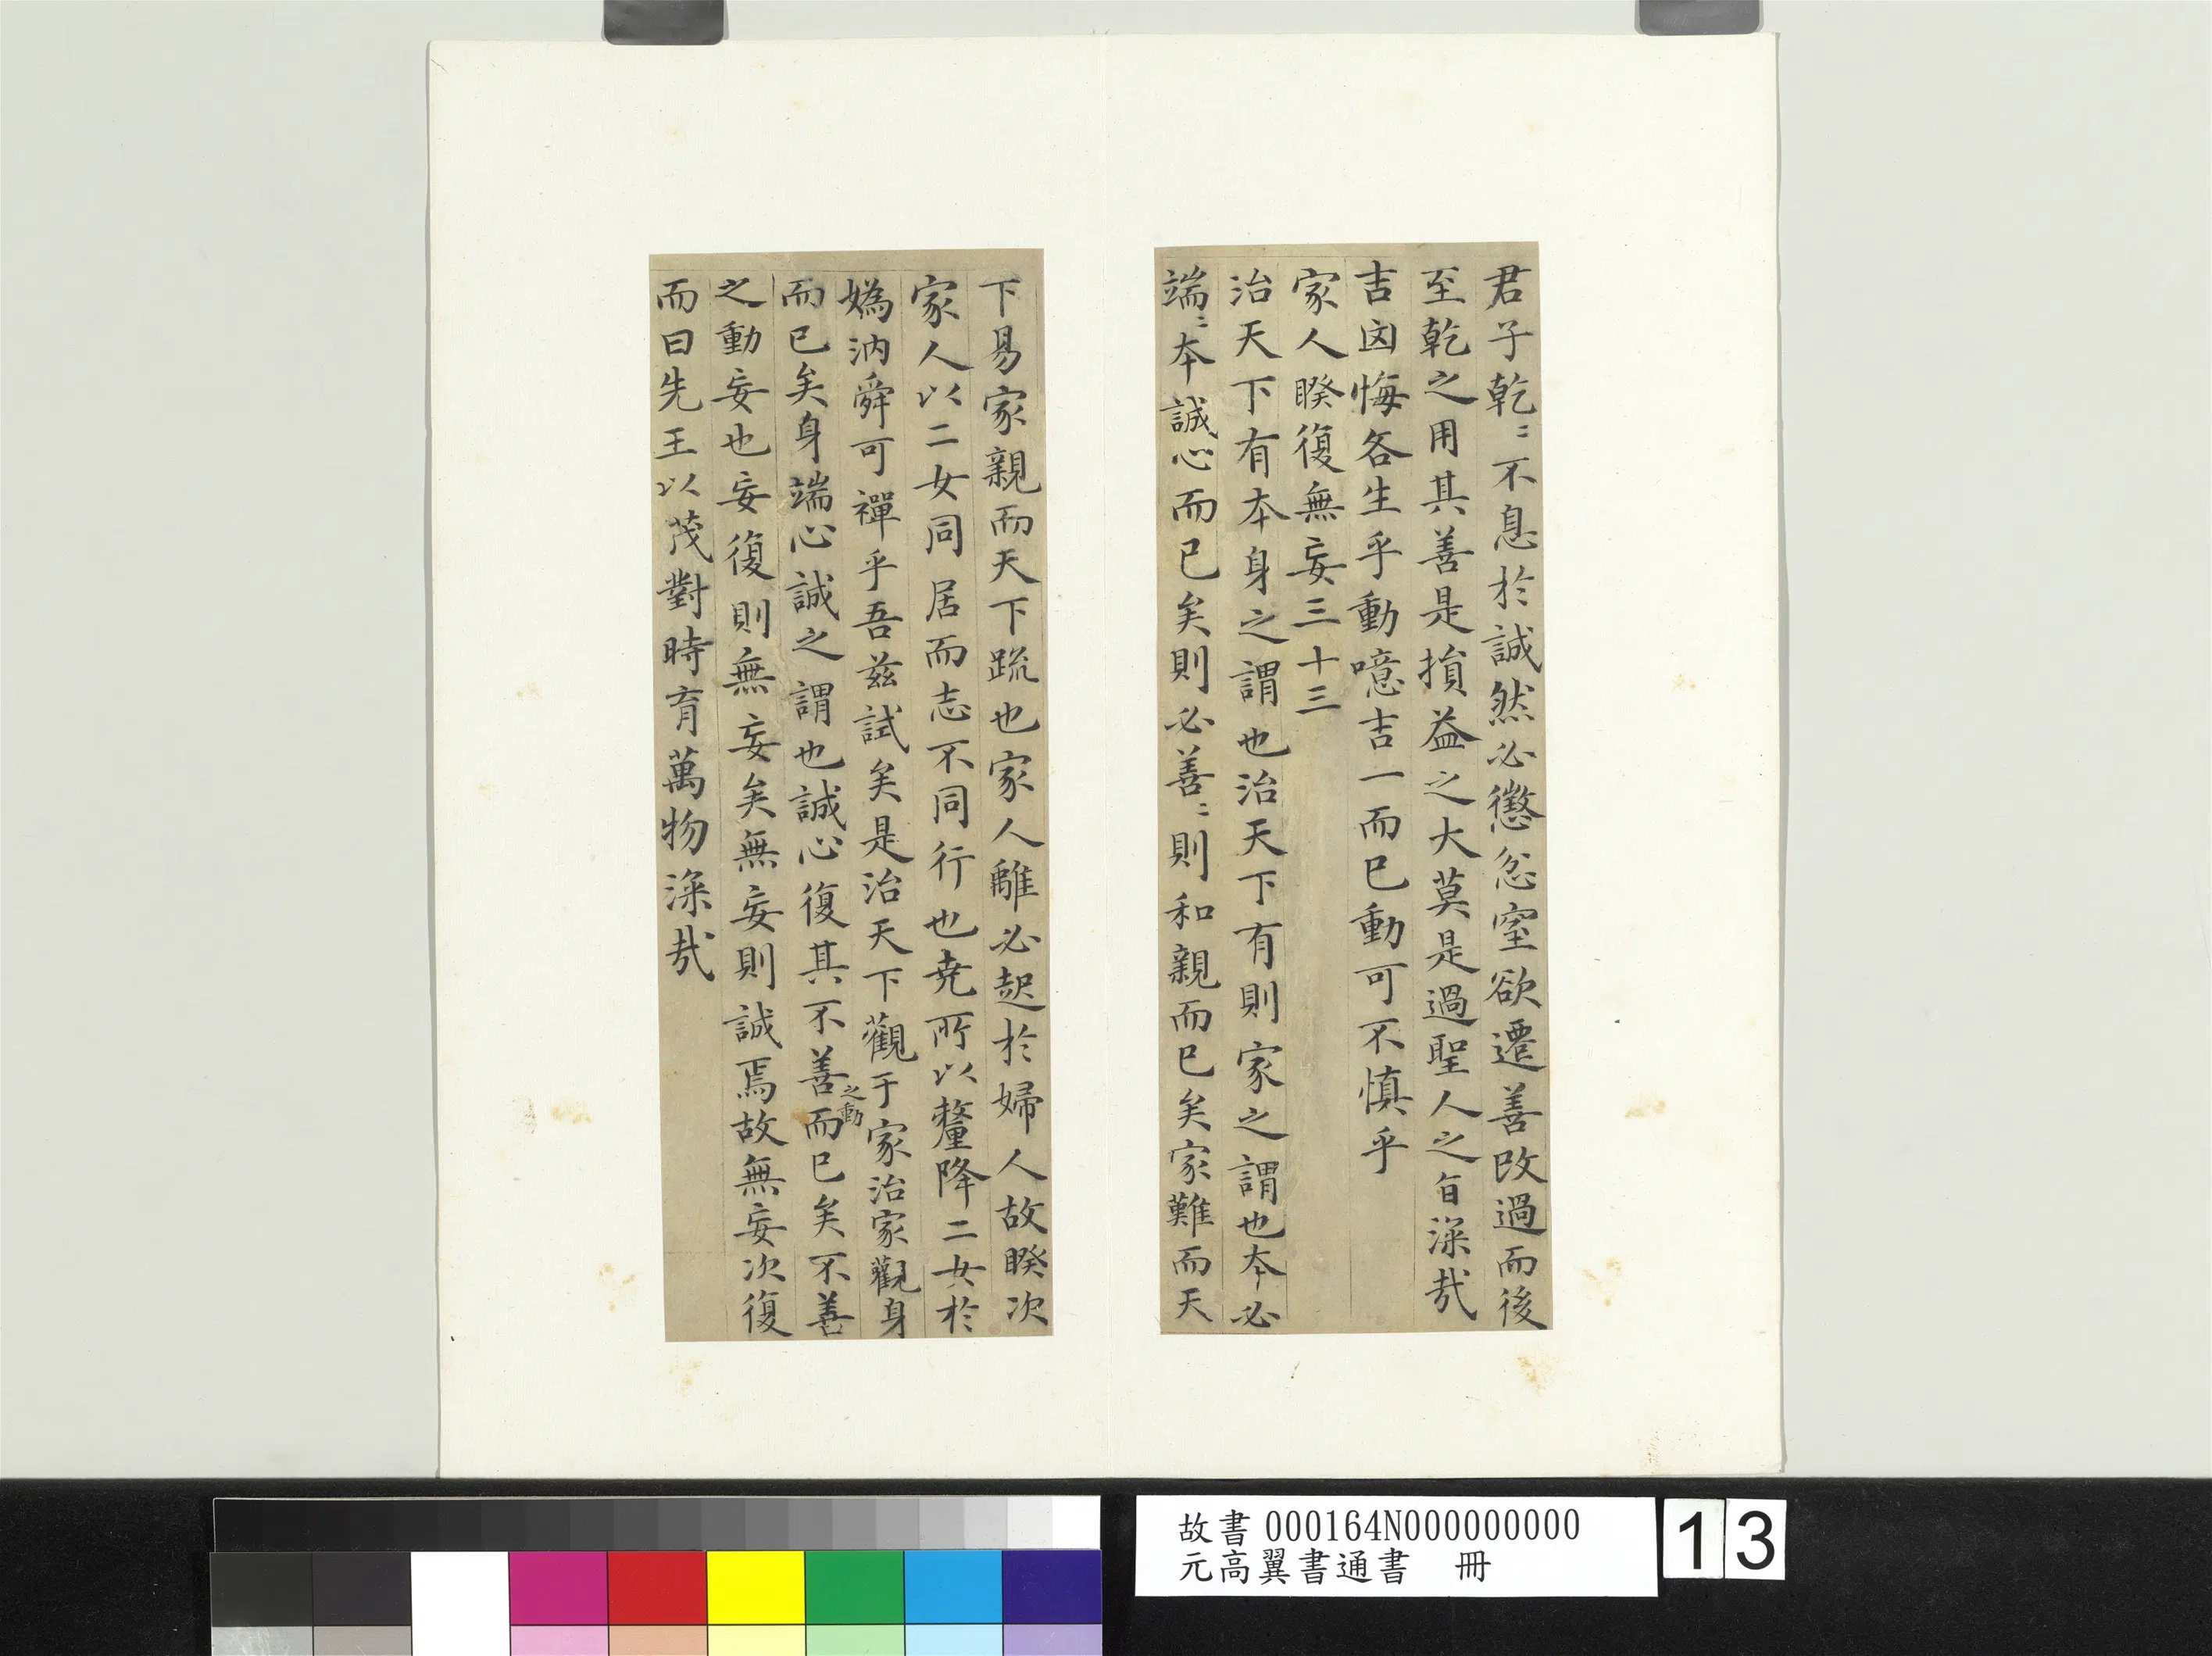 君子乾〻不息於誠然必懲忿窒欲遷善改過而後
至乾之用其善是損益之大莫是過聖人之旨深哉
吉凶悔吝生乎動噫吉一而已動可不慎乎
家人睽復無妄三十三
治天下有本身之謂也治天下有則家之謂也本必
端〻本誠心而已矣則必善〻則和親而已矣家難而天
下易家親而天下疏也家人離必起於婦人故睽次
家人以二女同居而志不同行也堯所以釐降二女於
媯汭舜可禪乎吾茲試矣是治天下觀于家治家觀身
而已矣身端心誠之謂也誠心復其不善之動而已矣不善
之動妄也妄復則無妄矣無妄則誠焉故無妄次復
而曰先王以茂對時育萬物深哉
故書 000164N000000000
元高翼書通書 冊
13